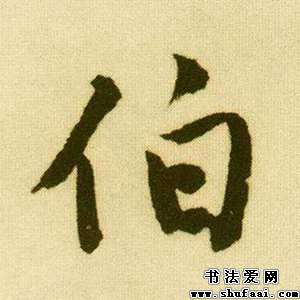 伯
书法爱网
www.shufaai.com